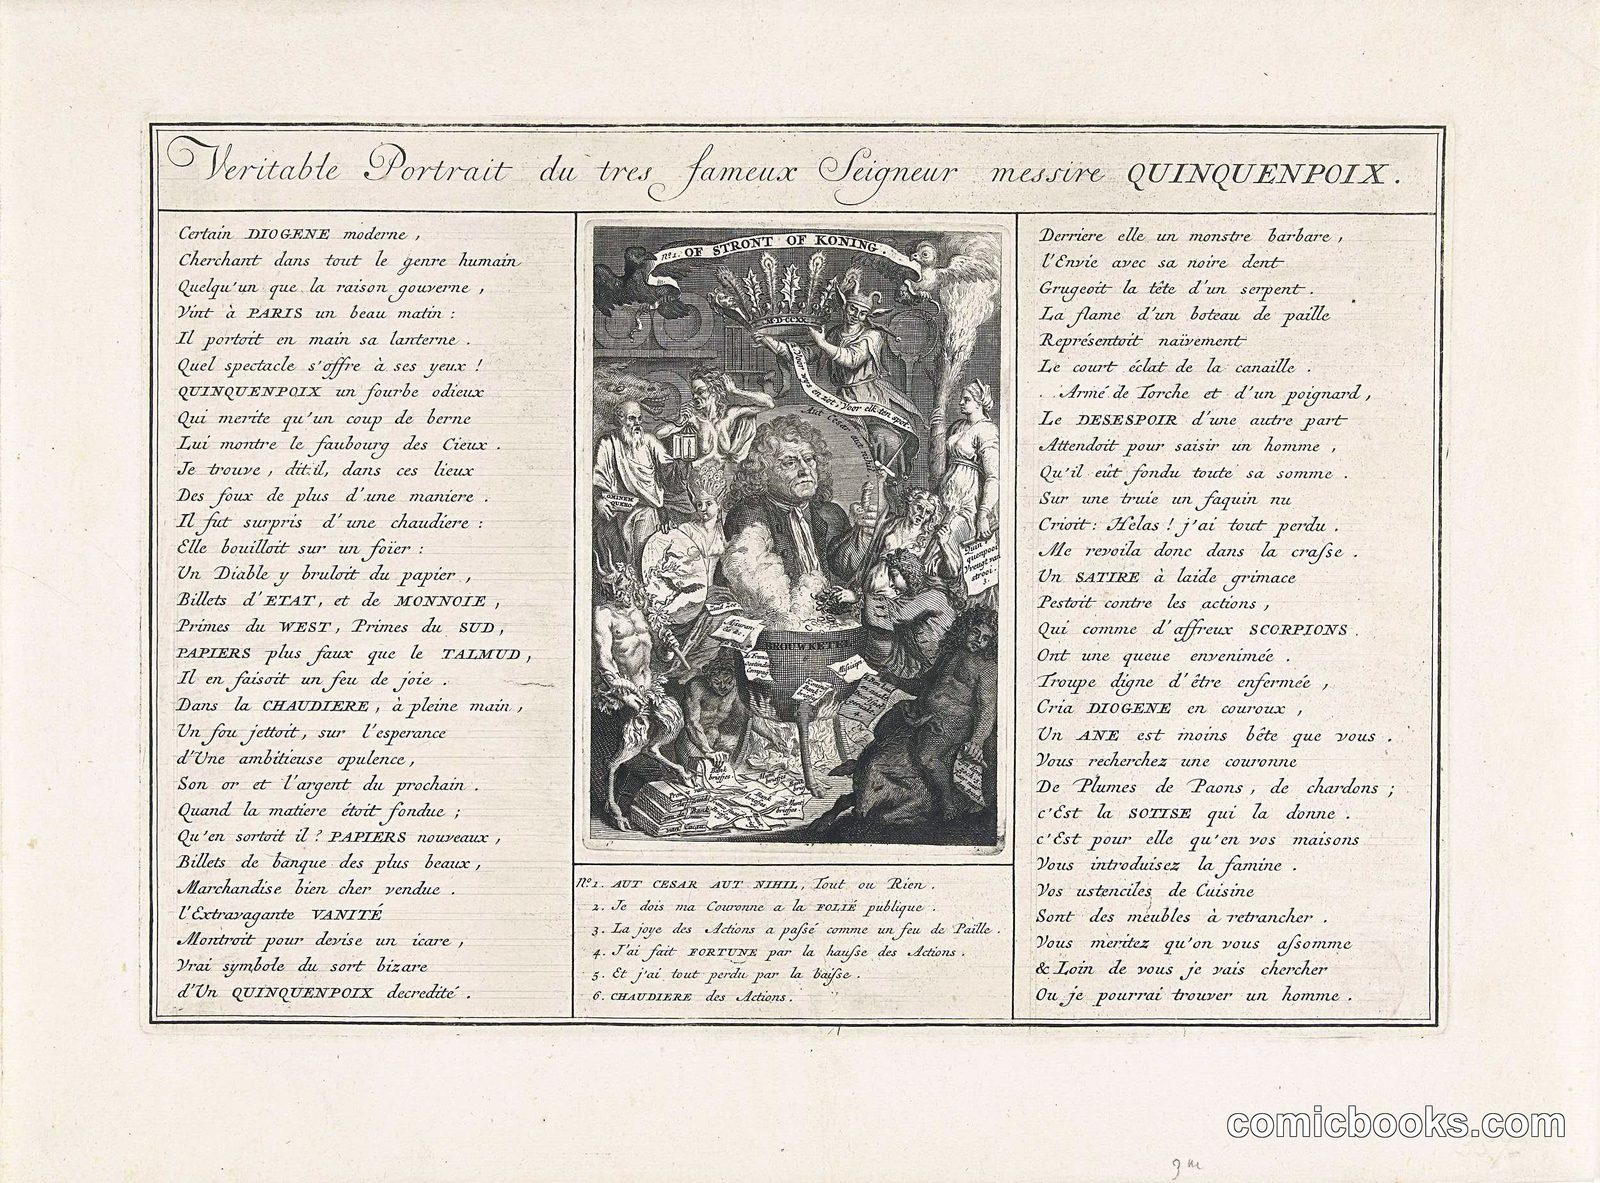 Veritable Portrait du tres fameux Seigneur messire QUINQUENPOIX.
Certain DIOGENE moderne,
Cherchant dans tout le genre humain
Quelqu'un que la raison gouverne,
Vint à PARIS un beau matin:
Il portoit en main sa lanterne.
Quel spectacle s'offre à ses yeux!
QUINQUENPOIX un fourbe odieux
Qui merite qu'un coup de berne
Lui montre le faubourg des Cieux.
Je trouve, dit.il, dans ces lieux
Des foux de plus d'une maniere.
Il fut surpris d'une chaudiere:
Elle bouilloit sur un foïer:
Un Diable y bruloit du papier,
Billets d'ETAT, et de MONNOIE,
Primes du WEST, Primes du SUD,
PAPIERS plus faux que le TALMUD,
Il en faisoit un feu de joie.
Dans la CHAUDIERE, à pleine main,
Un fou jettoit, sur l'esperance
d'Une ambitieuse opulence,
Son or et l'argent du prochain.
Quand la matiere étoit fondue;
Qu'en sortoit il? PAPIERS nouveaux,
Billets de banque des plus beaux,
Marchandise bien cher vendue.
l'Extravagante VANITÉ
Montroit pour devise un icare,
Vrai symbole du sort bizare
d'Un QUINQUENPOIX decredité.
No. 1. OF STRONT OF KONING.
MDCCXX
Voor elk een spel
Aut Cesar aut nihil
HOMINEM QUERO
Quinquenpoix Vreugt van stroo. 3.
BROUWKETEL
Missisipi
No. 1. AUT CESAR AUT NIHIL, Tout ou Rien.
2. Je dois ma Couronne a la FOLIÉ publique.
3. La joye des Actions a passé comme un feu de Paille.
4. J'ai fait FORTUNE par la hausse des Actions.
5. Et j'ai tout perdu par la baisse.
6. CHAUDIERE des Actions.
Derriere elle un monstre barbare,
l'Envie avec sa noire dent
Grugeoit la tête d'un serpent.
La flame d'un boteau de paille
Représentoit naïvement
Le court éclat de la canaille.
Armé de Torche et d'un poignard,
Le DESESPOIR d'une autre part
Attendoit pour saisir un homme,
Qu'il eût fondu toute sa somme.
Sur une truie un faquin nu
Crioit: Helas! j'ai tout perdu.
Me revoila donc dans la crasse.
Un SATIRE à laide grimace
Pestoit contre les actions,
Qui comme d'affreux SCORPIONS.
Ont une queue envenimée.
Troupe digne d'être enfermée,
Cria DIOGENE en couroux,
Un ANE est moins bête que vous.
Vous recherchez une couronne
De Plumes de Paons, de chardons;
c'Est la SOTISE qui la donne.
c'Est pour elle qu'en vos maisons
Vous introduisez la famine.
Vos ustenciles de Cuisine
Sont des meubles à retrancher.
Vous meritez qu'on vous assomme
& Loin de vous je vais chercher
Ou je pourrai trouver un homme.
comicbooks.com